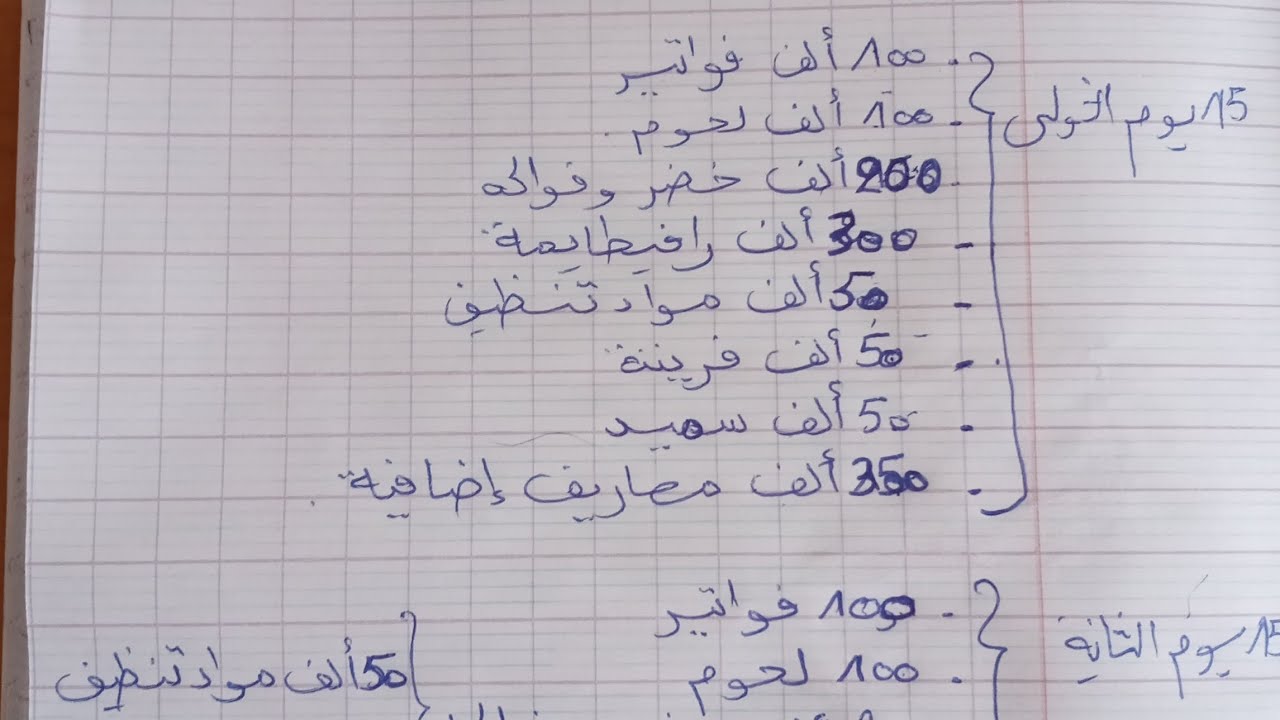 15 يوم الأولى
. 100 ألف فواتير
. 100 ألف لحوم .
200 ألف خضر وفواكه
- 300 ألف رافيطايمة
- 50 ألف مواد تنظيف
- 50 ألف فرينة
. 50 ألف سميد
. 350 ألف مصاريف إضافية .
15 يوم الثانية
. 100 فواتير
. 100 لحوم
50 ألف مواد تنظيف